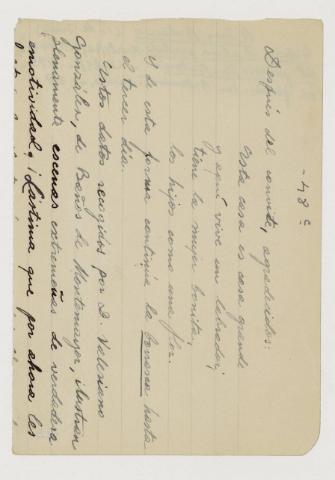 -48 c
Después del convite, agradecidos:
esta casa es casa grande
y aquí vive un labrador;
tiene la mujer bonita,
los hijos como una flor.
Y de esta forma continúa la borrasca hasta
el tercer día.
Estos datos recogidos por D. Valeriano
González, de Baños de Montemayor, ilustran
plenamente escenas extremeñas de verdadera
emotividad. ¡Lástima que por ahora les